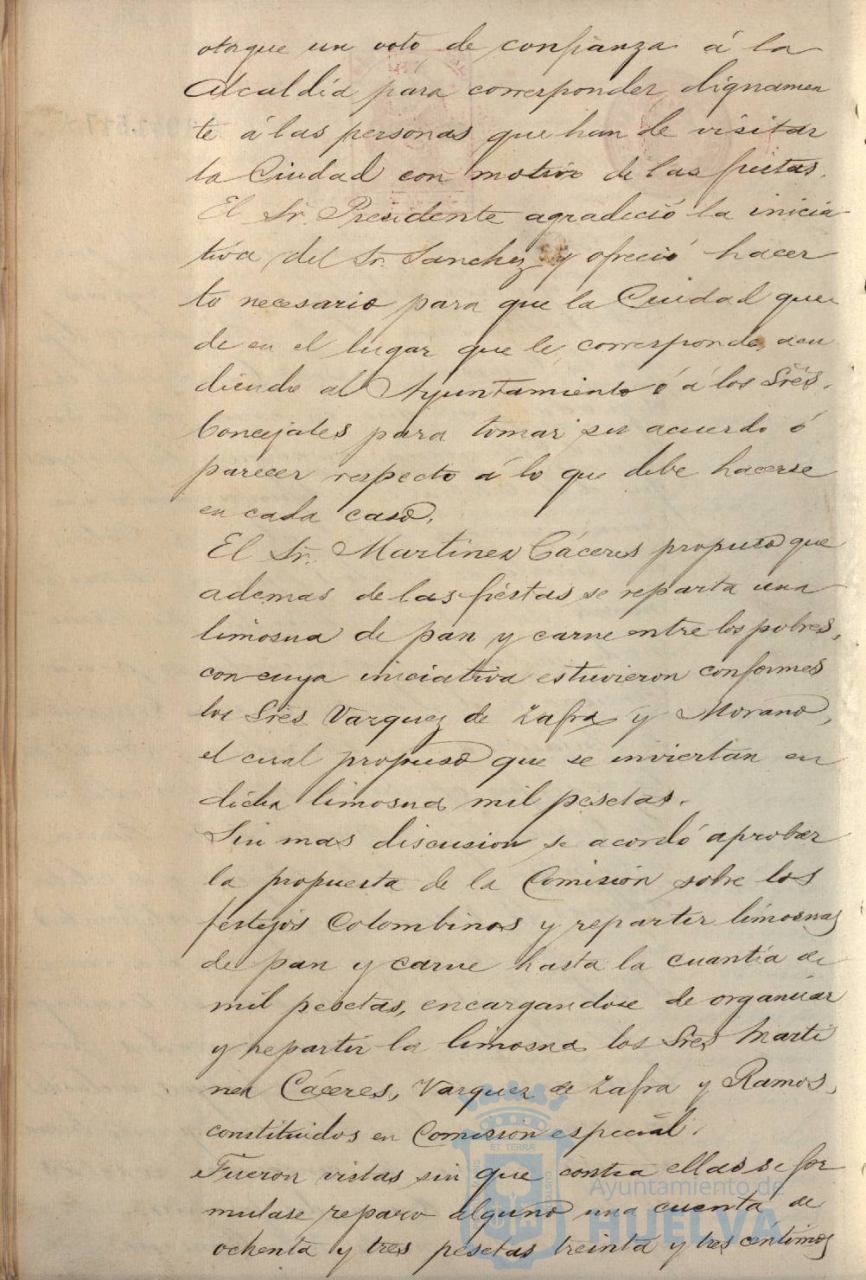 otorgue un voto de confianza á la
Alcaldía para corresponder dignamen
te á las personas que han de visitar
la Ciudad con motivo de las fiestas.
El Sr. Presidente agradeció la inicia
tiva del Sr. Sanchez y ofreció hacer
lo necesario para que la Ciudad que
de en el lugar que le corresponde, acu
diendo al Ayuntamiento ó á los Sres.
Concejales para tomar su acuerdo ó
parecer respecto á lo que debe hacerse
en cada caso.
El Sr. Martinez Cáceres propuso que
ademas de las fiestas se reparta una
limosna de pan y carne entre los pobres,
con cuya iniciativa estuvieron conformes
los Sres Vazquez de Zafra y Morano,
el cual propuso que se inviertan en
dicha limosna mil pesetas.
Sin mas discusion se acordó aprobar
la propuesta de la Comisión sobre los
festejos Colombinos y repartir limosnas
de pan y carne hasta la cuantía de
mil pesetas, encargandose de organizar
y repartir la limosna los Sres Marti
nez Cáceres, Vazquez de Zafra y Ramos,
constituidos en Comision especial.
Fueron vistas sin que contra ellas se for
mulase reparo alguno una cuenta de
ochenta y tres pesetas treinta y tres céntimos
Ayuntamiento de
HUELVA